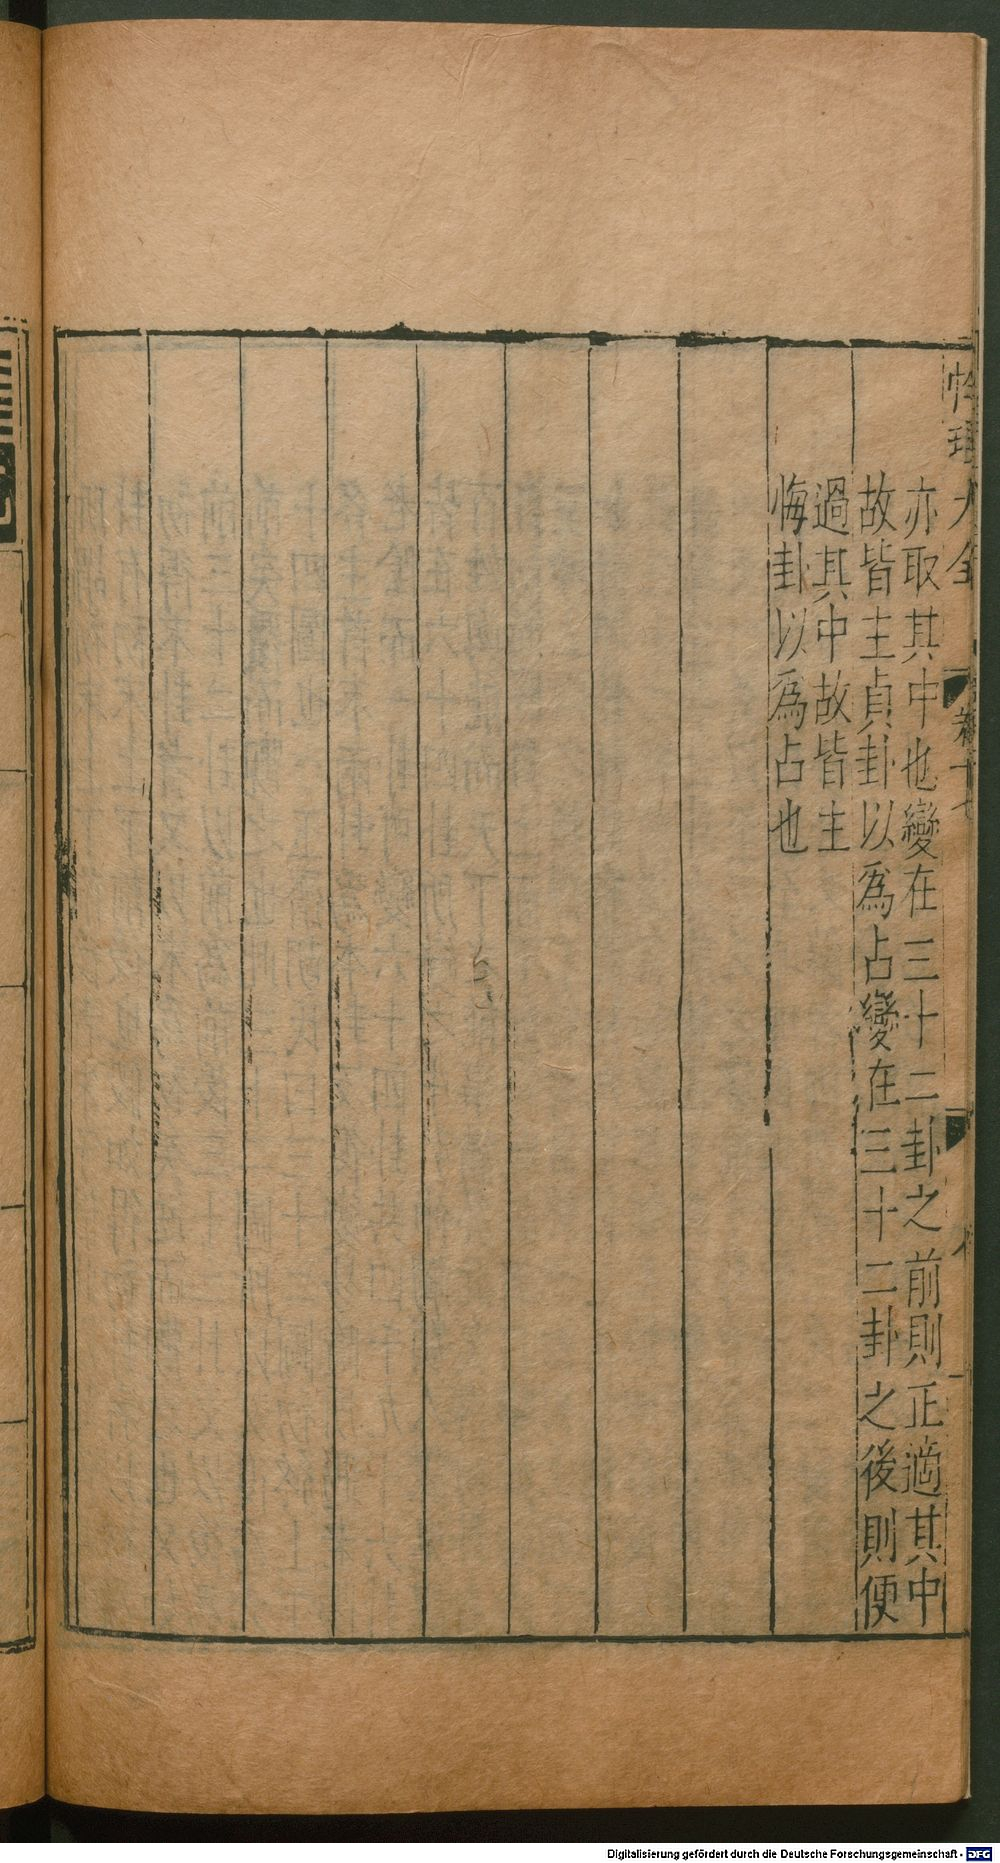 性理大全 卷十七
亦取其中也變在三十二卦之前則正適其中
故皆主貞卦以為占變在三十二卦之後則便
過其中故皆主
悔卦以為占也
Digitalisierung gefördert durch die Deutsche Forschungsgemeinschaft - DFG